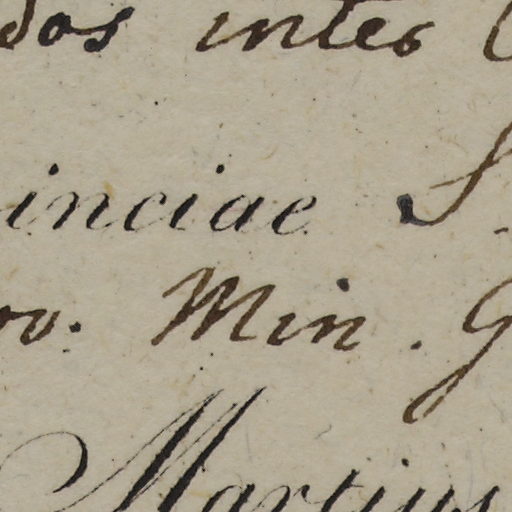 dos inter
inciae S
ov. Min. G
Martius